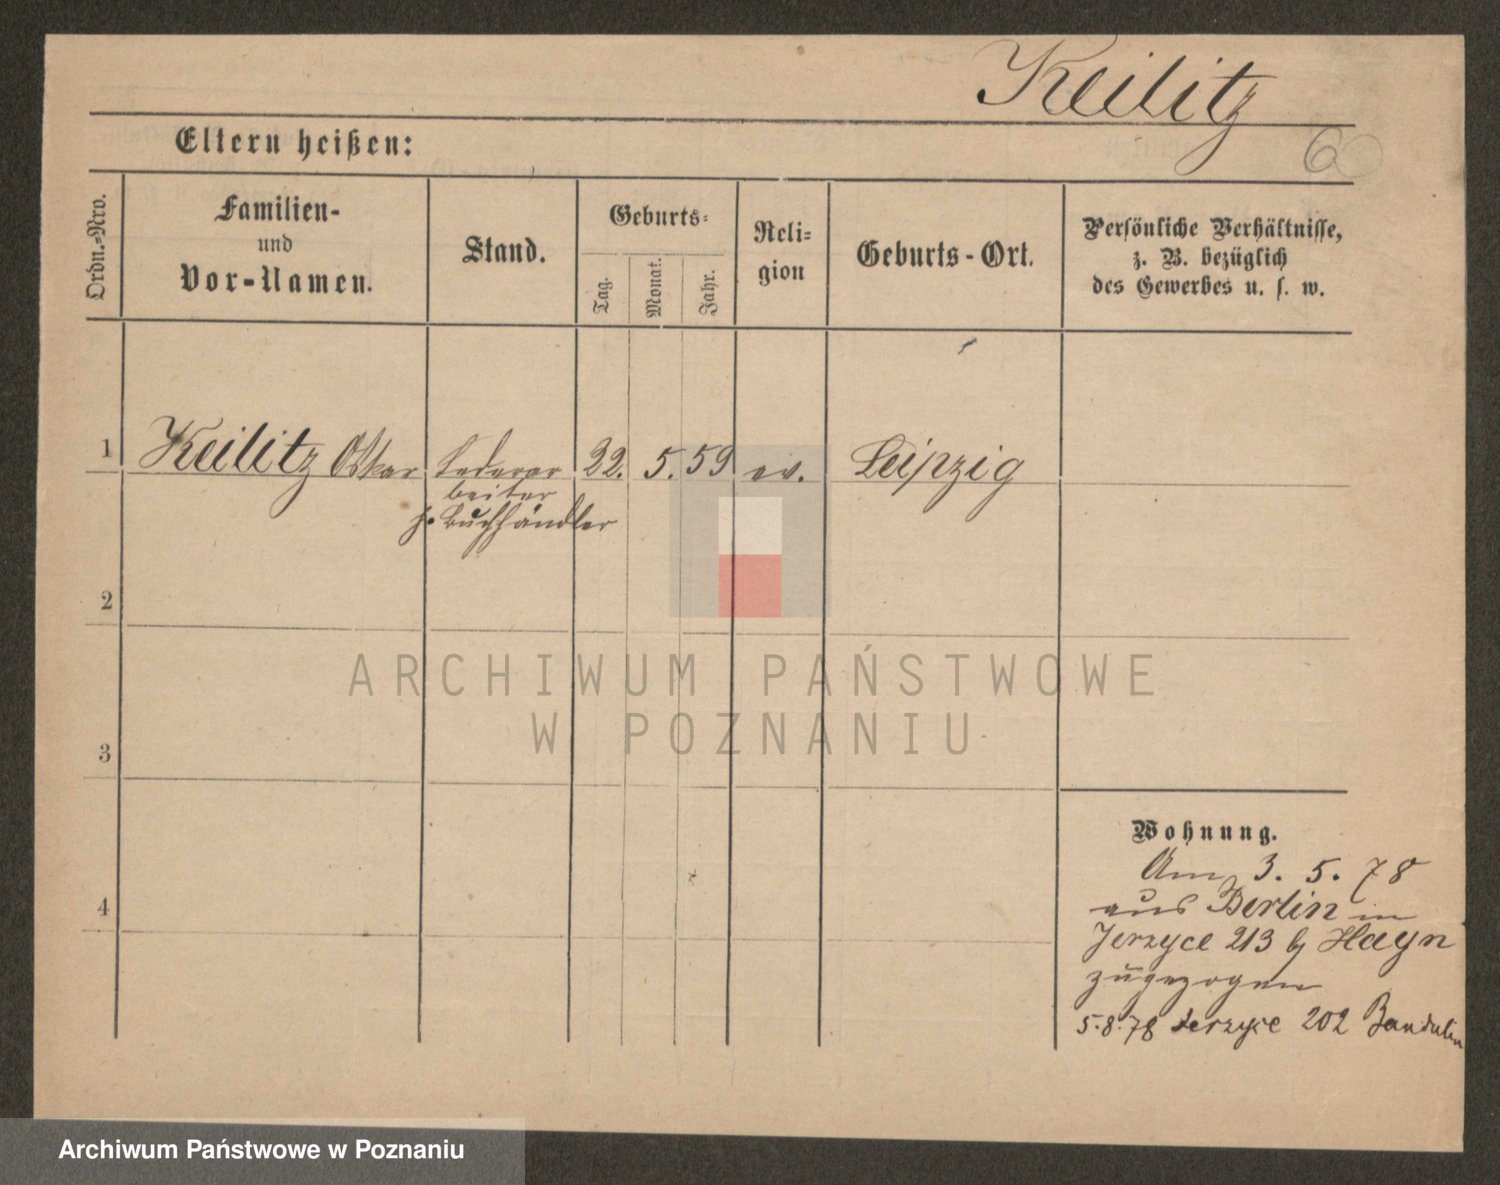 Keilitz
Eltern heißen:
60
Ordn.=Nro.
Familien-
und
Vor-Namen.
Stand.
Geburts-
Tag.
Monat.
Jahr.
Reli-
gion
Geburts-Ort.
Persönliche Verhältnisse,
z. B. bezüglich
des Gewerbes u. s. w.
1 Keilitz Oskar Lederar 22. 5. 59 ev. Leipzig
beiter
Buchhändler
2
ARCHIWUM PAŃSTWOWE
W POZNANIU
3
Wohnung.
Am 3. 5. 78
aus Berlin in
Jerzyce 213 bj Hayn
zugezogen
5.8.78 Jerzyce 202
4
Archiwum Państwowe w Poznaniu